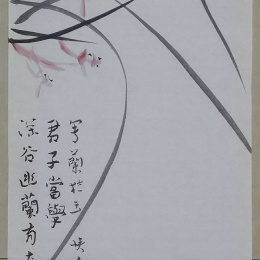 深谷幽蘭有
君子當學
写蘭於